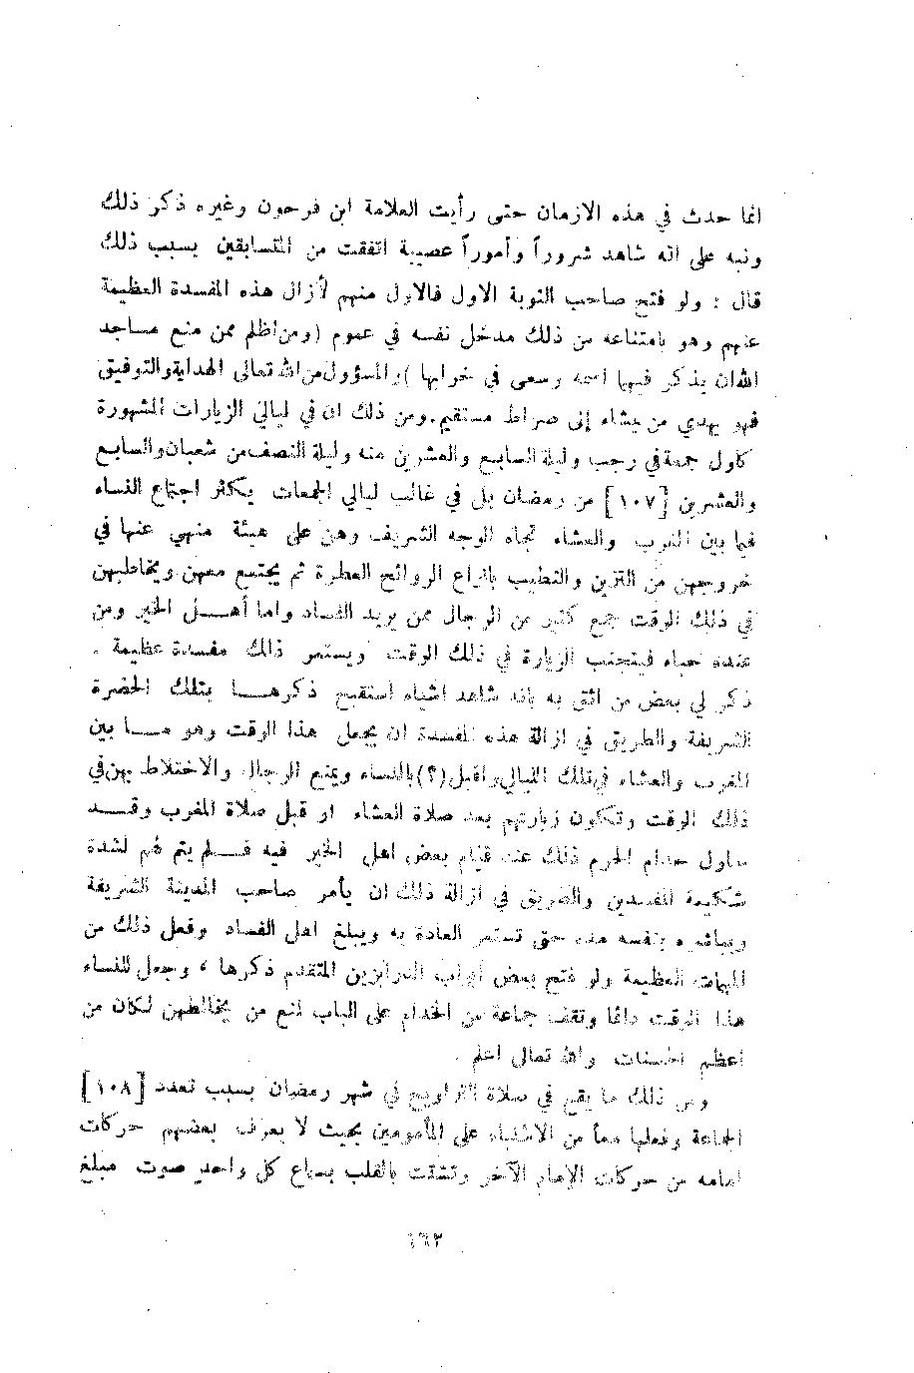 انما حدث في هذه الازمان حتى رأيت العلامة ابن فرحون وغيره ذكر ذلك
ونبه على انه شاهد شروراً وأموراً عصيبة اتفقت من المتسابقين بسبب ذلك
قال : ولو فتح صاحب النوبة الاول فالاول منهم لأزال هذه المفسدة العظيمة
عنهم وهو بامتناعه من ذلك مدخل نفسه في عموم (ومن اظلم ممن منع مساجد
الله ان يذكر فيها اسمه وسعى في خرابها ) والمسؤول من الله تعالى الهداية والتوفيق
فهو يهدي من يشاء إلى صراط مستقيم. ومن ذلك ان في ليالي الزيارات المشهورة
كاول جمعة في رجب وليلة السابع والعشرين منه وليلة النصف من شعبان والسابع
والعشرين [١٠٧] من رمضان بل في غالب ليالي الجمعات يكثر اجتماع النساء
فيما بين المغرب والعشاء تجاه الوجه الشريف وهن على هيئة منهي عنها في
خروجهن من التزين والتطيب بانواع الروائح العطرة ثم يجتمع معهن ويخاطبهن
في ذلك الوقت جمع كثير من الرجال ممن يريد الفساد واما أهل الخير ومن
عنده حياء فيتجنب الزيارة في ذلك الوقت ويستمر ذالك مفسدة عظيمة .
ذكر لي بعض من اثق به بانه شاهد اشياء استقبح ذكرها بتلك الحضرة
الشريفة والطريق في ازالة هذه المفسدة ان يجعل هذا الوقت وهو ما بين
المغرب والعشاء في تلك الليالي واقبل (؟) بالنساء ويمنع الرجال والاختلاط بهن في
ذلك الوقت وتكون زيارتهم بعد صلاة العشاء او قبل صلاة المغرب وقد
حاول خدام الحرم ذلك عند قيام بعض اهل الخير فيه فلم يتم لهم لشدة
شكيمة المفسدين والطريق في ازالة ذلك ان يأمر صاحب المدينة الشريفة
ويباشره بنفسه هذه حتى تستمر العادة به ويبلغ اهل الفساد وفعل ذلك من
المهمات العظيمة ولو فتح بعض أبواب الدرابزين المتقدم ذكرها ، وجعل للنساء
هذا الوقت دائما وتقف جماعة من الخدام على الباب لمنع من يخالطهن لكان من
اعظم الحسنات والله تعالى اعلم .
ومن ذلك ما يقع في صلاة التراويح في شهر رمضان بسبب تعدد [١٠٨]
الجماعة وفعلها معاً من الاشتباه على المأمومين بحيث لا يعرف بعضهم حركات
امامه من حركات الإمام الآخر وتشتت بالقلب بسماع كل واحد صوت مبلغ
١٦٣